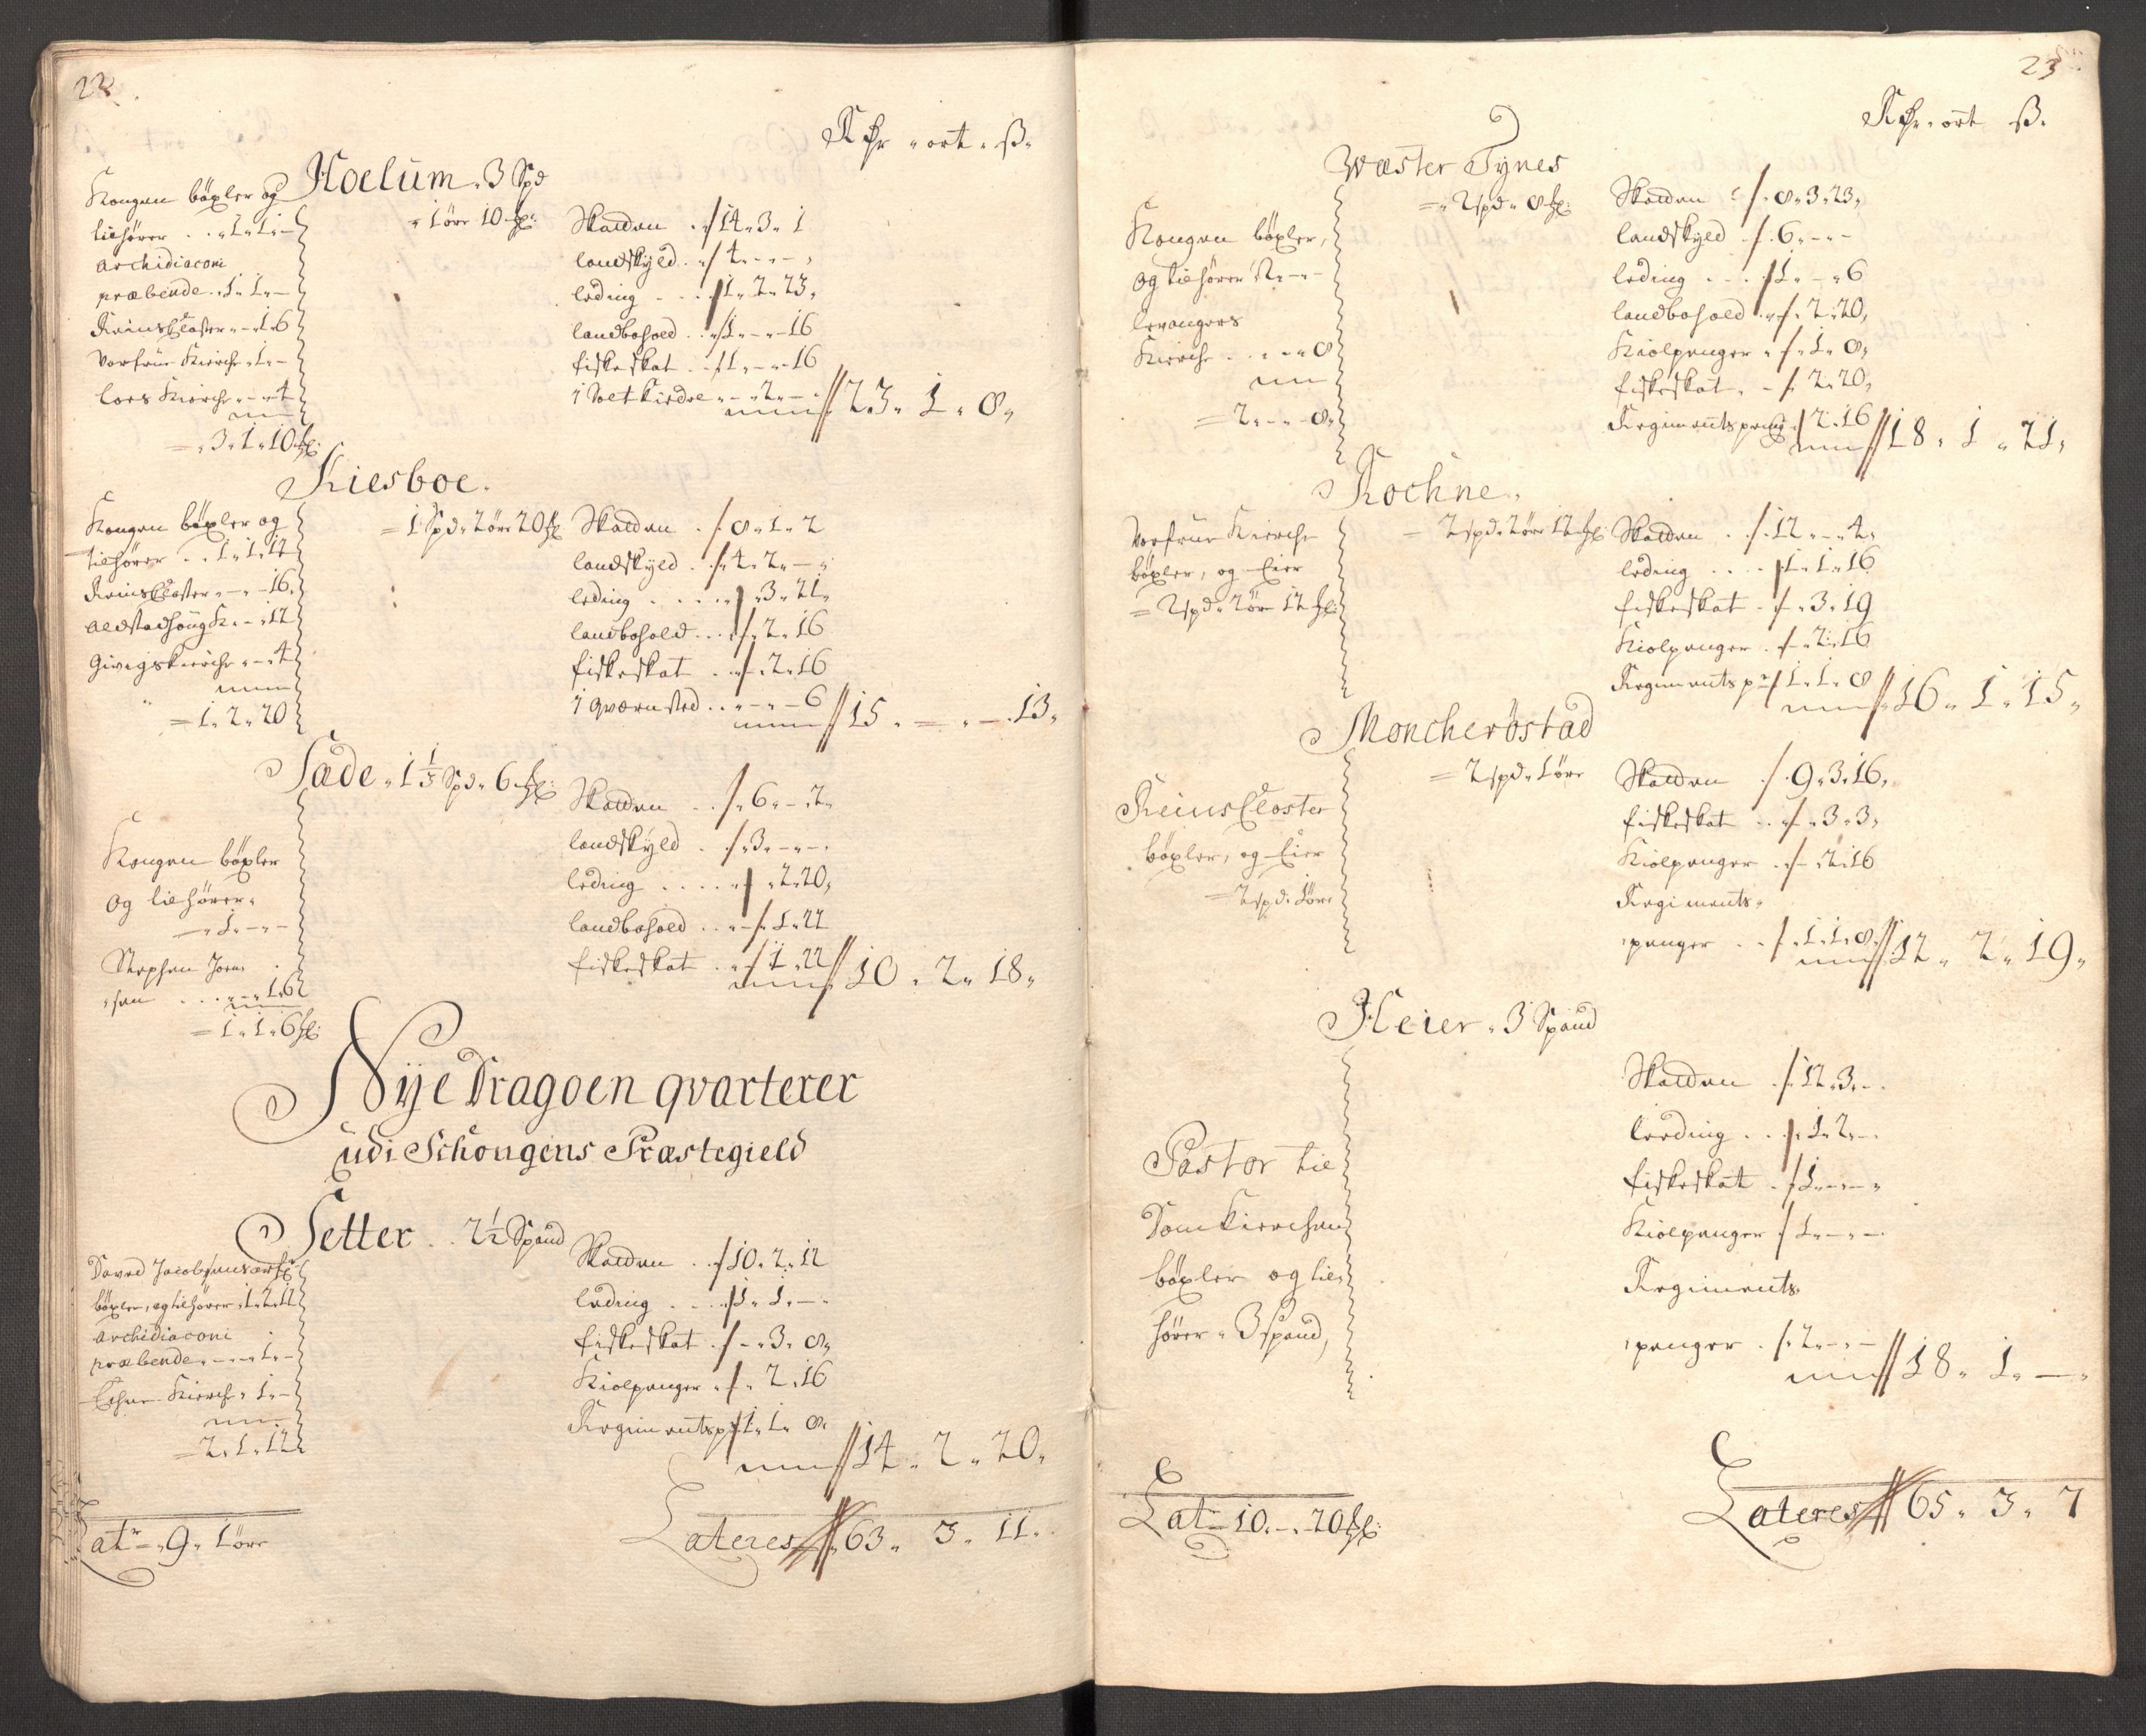 22.
Rdr " ort " ß "
Hoelum " 3 Spd
" 1 øre 10 ml:
Kongen böxler og
tilhörer . . " 1 " 1 " –
Archidiaconi
præbende . " 1 " 1 " –
ReinsCloster " – " 1 " 6
Vorfrue Kirche " 1 " –
loes Kirche " – " 4
= " 3 " 1 " 10 ml:
Skatten . . 14 " 3 " 1
landskyld . . 4 " – " –
leding . . . 1 " 2 " 23 "
landbohold . . 1 " – " 16
fiskeskat . . 1 " – " 16
" 23 " 1 " 8 "
Kiesboe.
= 1 Spd " 2 øre 20 ml
Kongen böxler og
tilhörer . . 1 " 1 " 12
ReinsCloster " – " – 16
Aldstadhoug K. " – " 12
Givingskirche " – " 4
= 1 " 2 " 20
Skatten . 8 " 1 " 2
landskyld . 4 " 2 " –
leding . . . . " 3 " 21 "
landbohold . . . " 2 " 16
fiskeskat . . " 2 " 16
1 qværnsted . . " – " – 6
15 " = " – " 13 "
Sæde " 1 1/3 Spd " 6 ml:
Kongen böxler
og tilhörer "
– " 1 " – " –
Stephen Joen
" sen . . . " – " 1 " 6
= 1 " 1 " 6 ml:
Skatten . . 6 " – " 2 "
landskyld . 3 " – " –
leding . . . . . " 2 " 20 "
landbohold . . " – 1 " 22
fiskeskat . . 1 " 22
10 " 2 " 18 "
Nye Dragoen qvarterer
udi Schongens Præstegield
Setter . . 2 1/2 Spand
David Jacobsens arf:
böxler, og tilhörer " 1 " 2 " 12
Archidiaconi
præbende " – " – " 1 " –
Kirche " 1 " –
= 2 " 1 " 12
Skatten . . 10 " 2 " 12
leding . . . . 1 " 1 " –
fiskeskat . – " 3 " 8 "
Kiölpenger " " 2 " 16
Regimentsp 1 " 1 " 8 "
14 " 2 " 20 "
Latr = " 9 " 1 øre
Lateres 63 " 3 " 11 "
23
Rdr " ort ß "
Wæster Tynes
= " 2 spd " 8 ml:
Kongen böxler,
og tilhörer 2 " – " –
levangers
Kirche . . " – " 8
= 2 " – " – 8 "
Skatten . 8 " 3 " 23 "
landskyld . 6 " – " –
leding . . . 1 " – " 6
landbohold . " 2 " 20 "
Kiölpenger " 1 " 8 "
fiskeskat " – 2 " 20 "
Regimentspeng 2 " 16
18 " 1 " 21 "
Rochne "
= 2 spd " 2 øre 12 ml:
Vorfrue Kirche
böxler, og Eier
= 2 spd " 2 øre 12 ml:
Skatten . . 12 " – " 4 "
leding . . . . 1 " 1 " 16
fiskeskat . " 3 " 19
Kiolpenger . – " 2 " 16
Regiments p 1 " 1 " 8
16 " 1 " 15 "
Moncheröstad
= 2 spd " 1 øre
ReinsCloster
böxler, og Eier
= 2 spd " 1 øre
Skatten . 9 " 3 " 16 "
fiskeskat . . " 3 " 3 "
Kiölpenger . – " 2 " 16
Regiments "
" penger . . 1 " 1 " 8
12 " 2 " 19 "
Heier " 3 Spand
Pastor til
Domkirchen
böxler og til
hörer " 3 spand,
Skatten . 12 " 3 " –
leeding . . 1 " 2 " –
fiskeskat . 1 " – " –
Kiölpenger 1 " – " –
Regiments
" penger . 2 " – " –
18 " 1 " – "
Lat = 10 " – " 20 ml:
Lateres 65 " 3 " 7